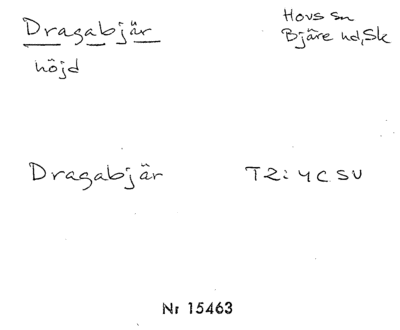 Dragabjär
höjd
Hovs sn
Bjäre hd, Sk
Dragabjär
T2: 4c SV
Nr 15463